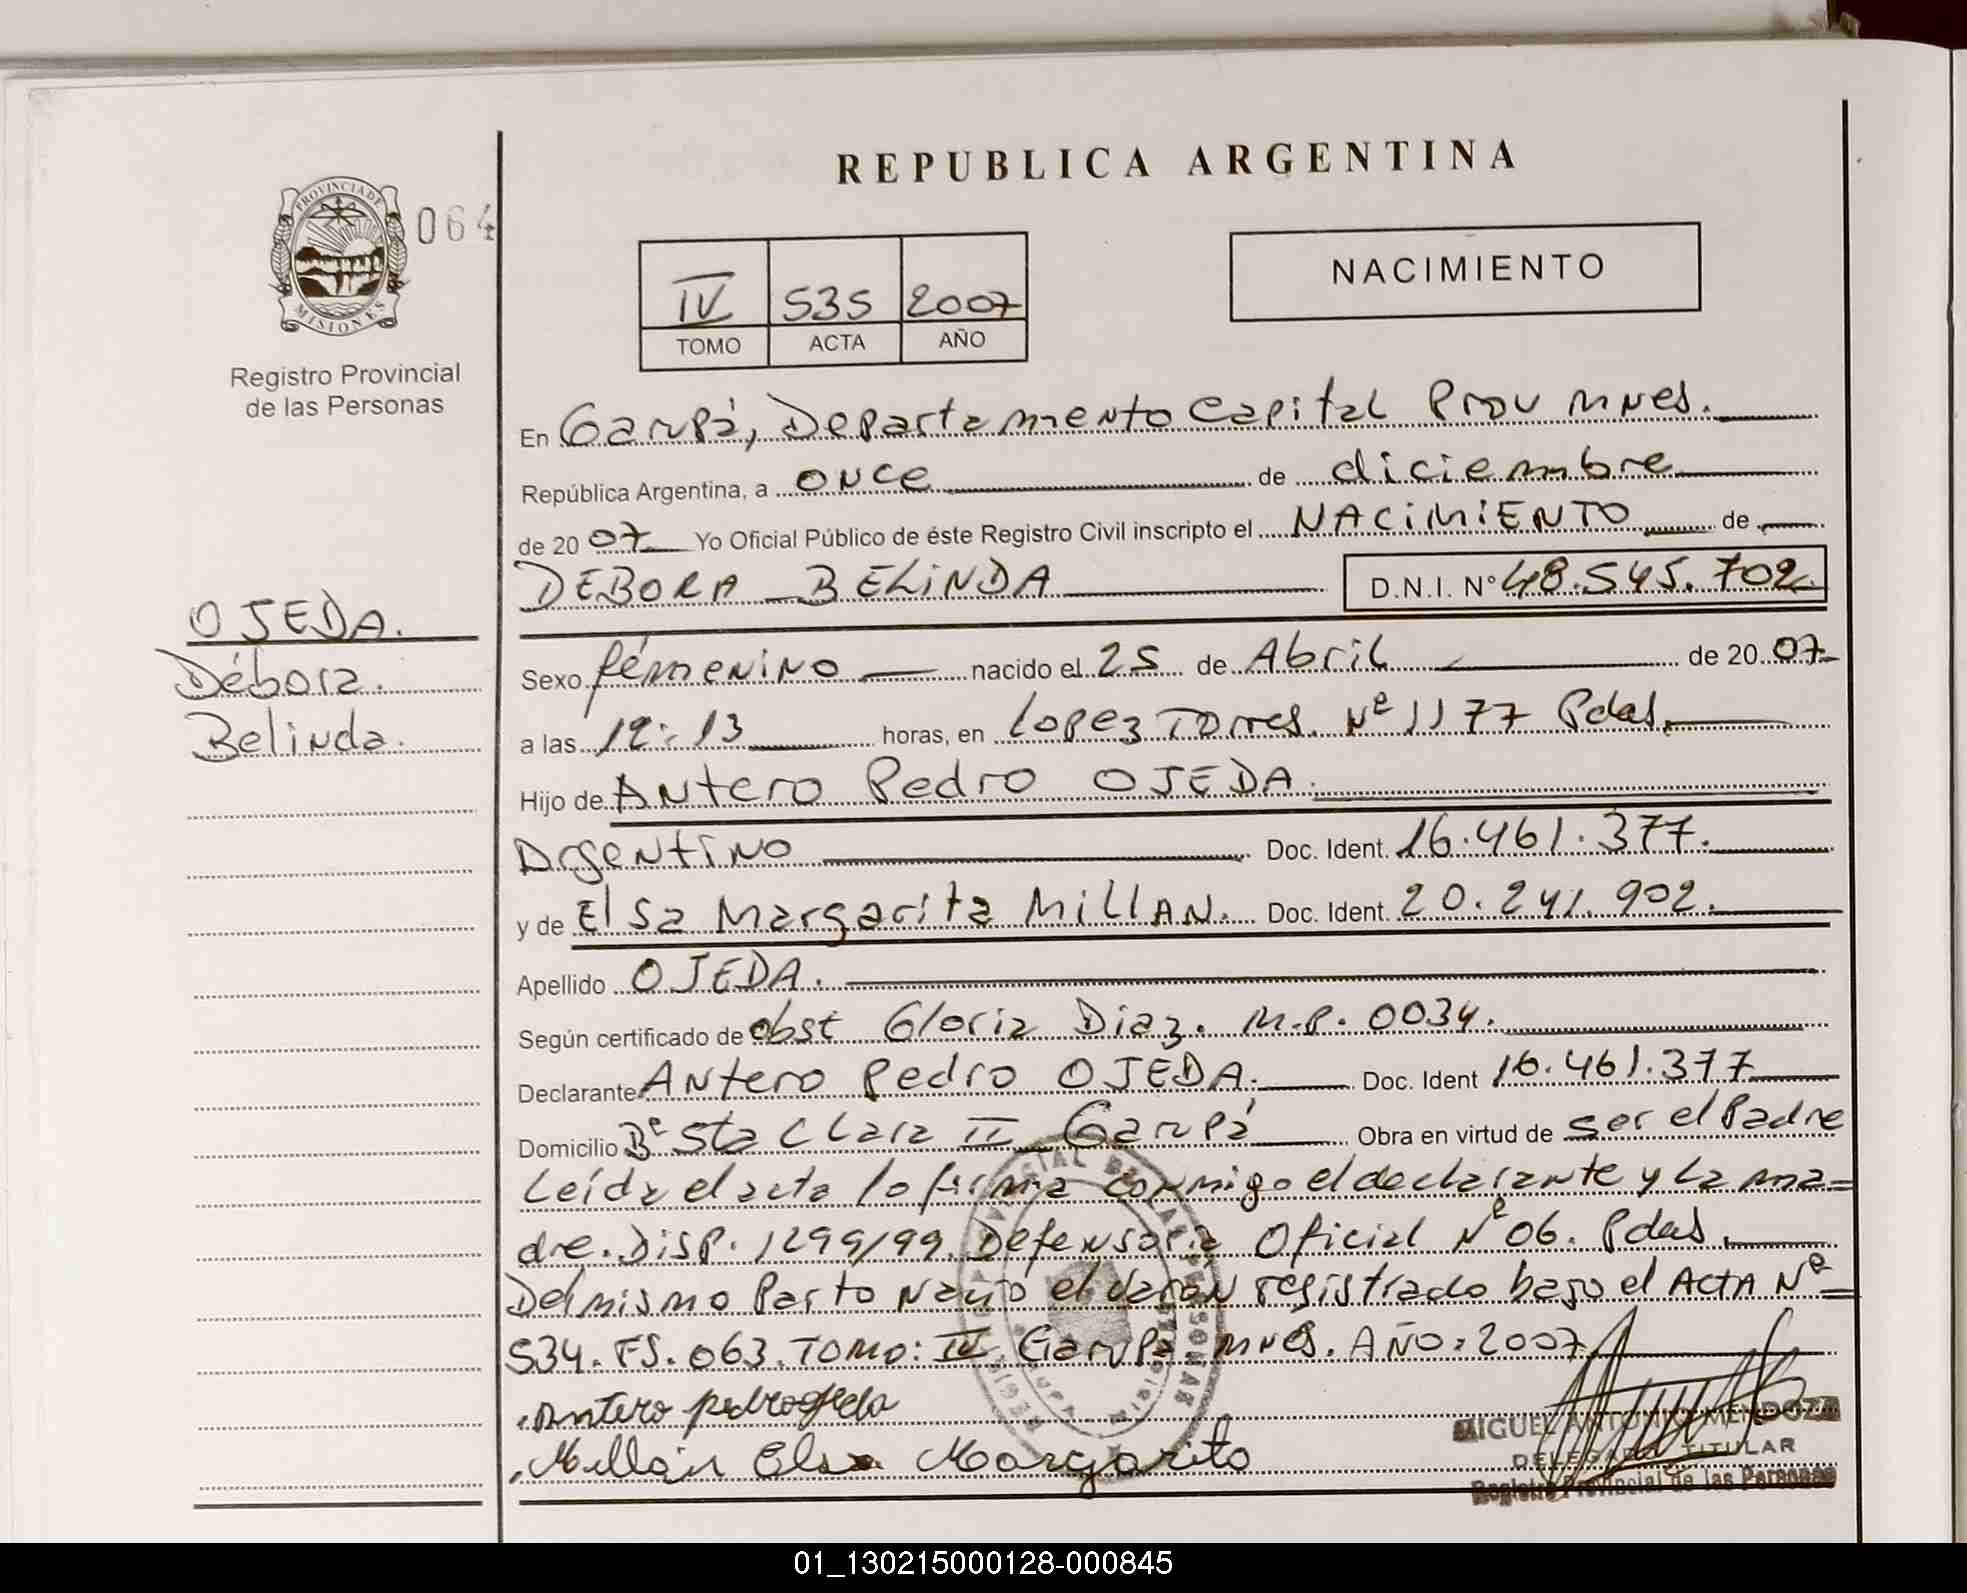 REPUBLICA ARGENTINA
PROVINCIA DE
MISIONES
064
Registro Provincial
de las Personas
IV 535 2007
TOMO ACTA AÑO
NACIMIENTO
En Garupá, Departamento Capital Prov Mnes.
República Argentina, a once de diciembre
de 2007 Yo Oficial Público de éste Registro Civil inscripto el NACIMIENTO de
DEBORA BELINDA D.N.I. Nº 48.545.702
OJEDA.
Débora.
Belinda.
Sexo femenino nacido el 25 de Abril de 2007
a las 12:13 horas, en Lopez Torres. Nº 1177 Pdas.
Hijo de Antero Pedro OJEDA.
Argentino Doc. Ident. 16.461.377.
y de Elsa Margarita MillAN. Doc. Ident. 20.241.902.
Apellido OJEDA.
Según certificado de obst Gloria Diaz. M.P. 0034.
Declarante Antero Pedro OJEDA. Doc. Ident 16.461.377
Domicilio Bº Sta Clara II Garupá Obra en virtud de ser el Padre
Leída el acta lo firma conmigo el declarante y La ma=
dre. Disp. 1299/99. Defensoria Oficial Nº 06. Pdas.
Del mismo Parto Nació el varon registrado bajo el ACTA Nº=
534. FS. 063. TOMO: IV Garupa. Mnes. AÑO: 2007
Antero pedro ojeda
Millán Elsa Margarita
MIGUEL ANTONIO MENDOZA
DELEGADO TITULAR
Registro Provincial de las Personas
01_130215000128-000845